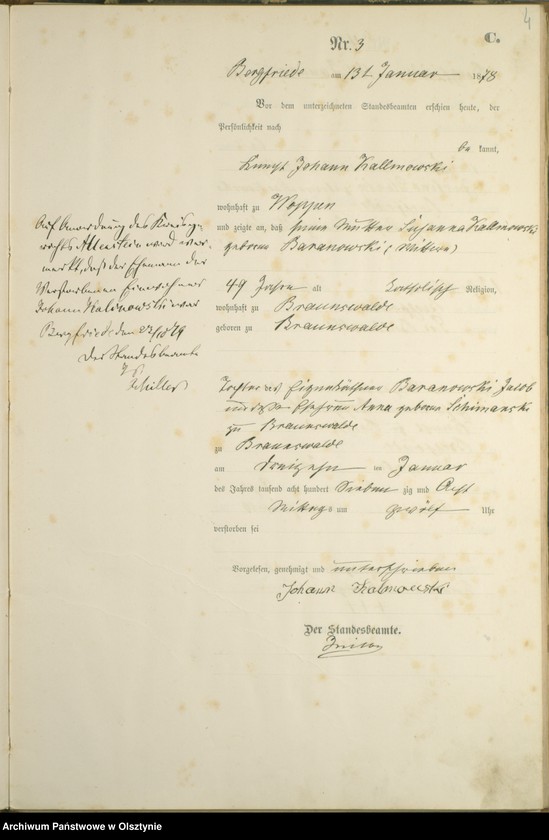 4
C.
Nr. 3
Bergfriede am 13t Januar 1878
Vor dem unterzeichneten Standesbeamten erschien heute, der
Persönlichkeit nach
be kannt,
Knecht Johann Kallmowski
wohnhaft zu Woppen
und zeigte an, daß seine Mutter Susanna Kallmowski
geborene Baranowski (Wittwe)
49 Jahre alt Katholisch Religion,
wohnhaft zu Braunswalde
geboren zu Braunswalde
Auf Anordnung des Kreisge-
richts Allenstein wird ver-
merkt, daß der Ehemann der
Verstorbenen
Johann Kalinowski war
Bergfriede den
Der Standesbeamte
Schiller
Tochter des Eigenkäthner Baranowski Jacob
und Ehefrau Anna geborene Schimanski
zu Braunswalde
zu Braunswalde
am dreizehn ten Januar
des Jahres tausend acht hundert Sieben zig und Acht
Mittags um zwölf Uhr
verstorben sei
Vorgelesen, genehmigt und unterschrieben
Johann Kalmowski
Der Standesbeamte.
Archiwum Państwowe w Olsztynie